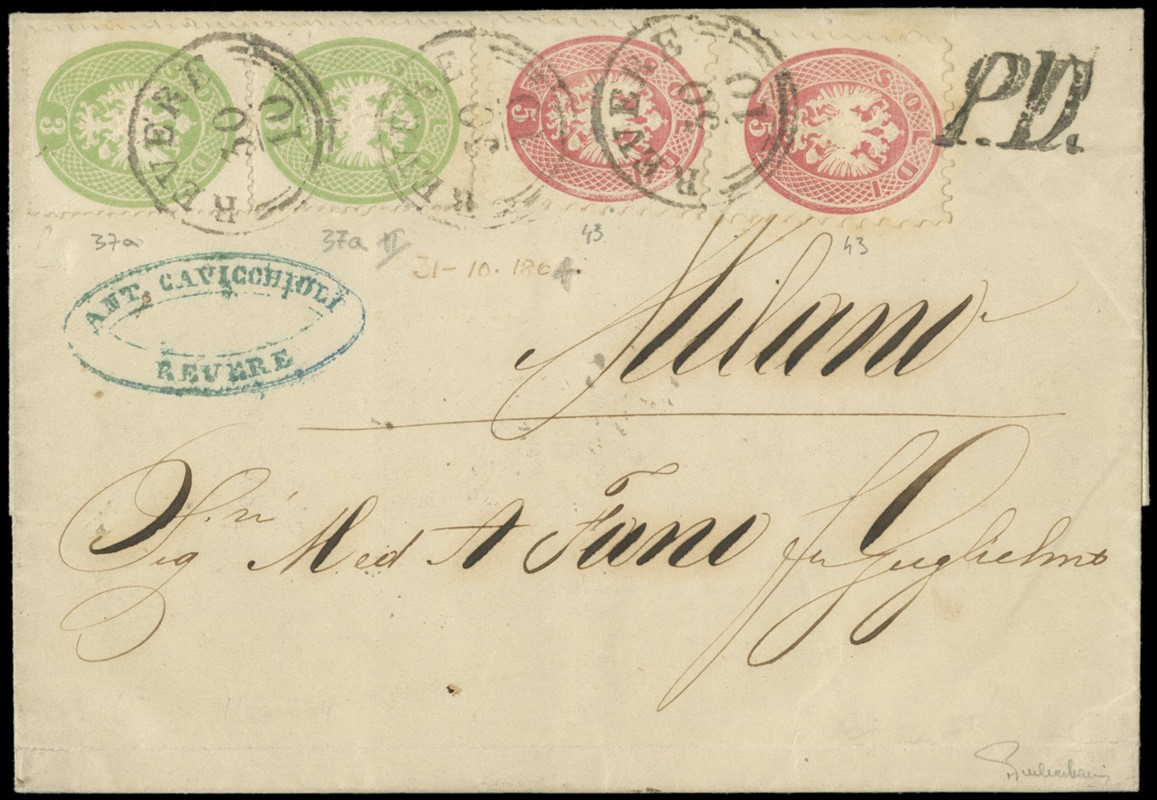 3 SOLDI
SOLDI
5 SOLDI
5 SOLDI
REVERE 30 10
REVERE 30 10
REVERE 30 10
P.D.
37a
37a
43
43
31-10.1864.
ANT. CAVICCHIOLI
REVERE
Milano
Sig.ri Med A Fano fu Guglielmo